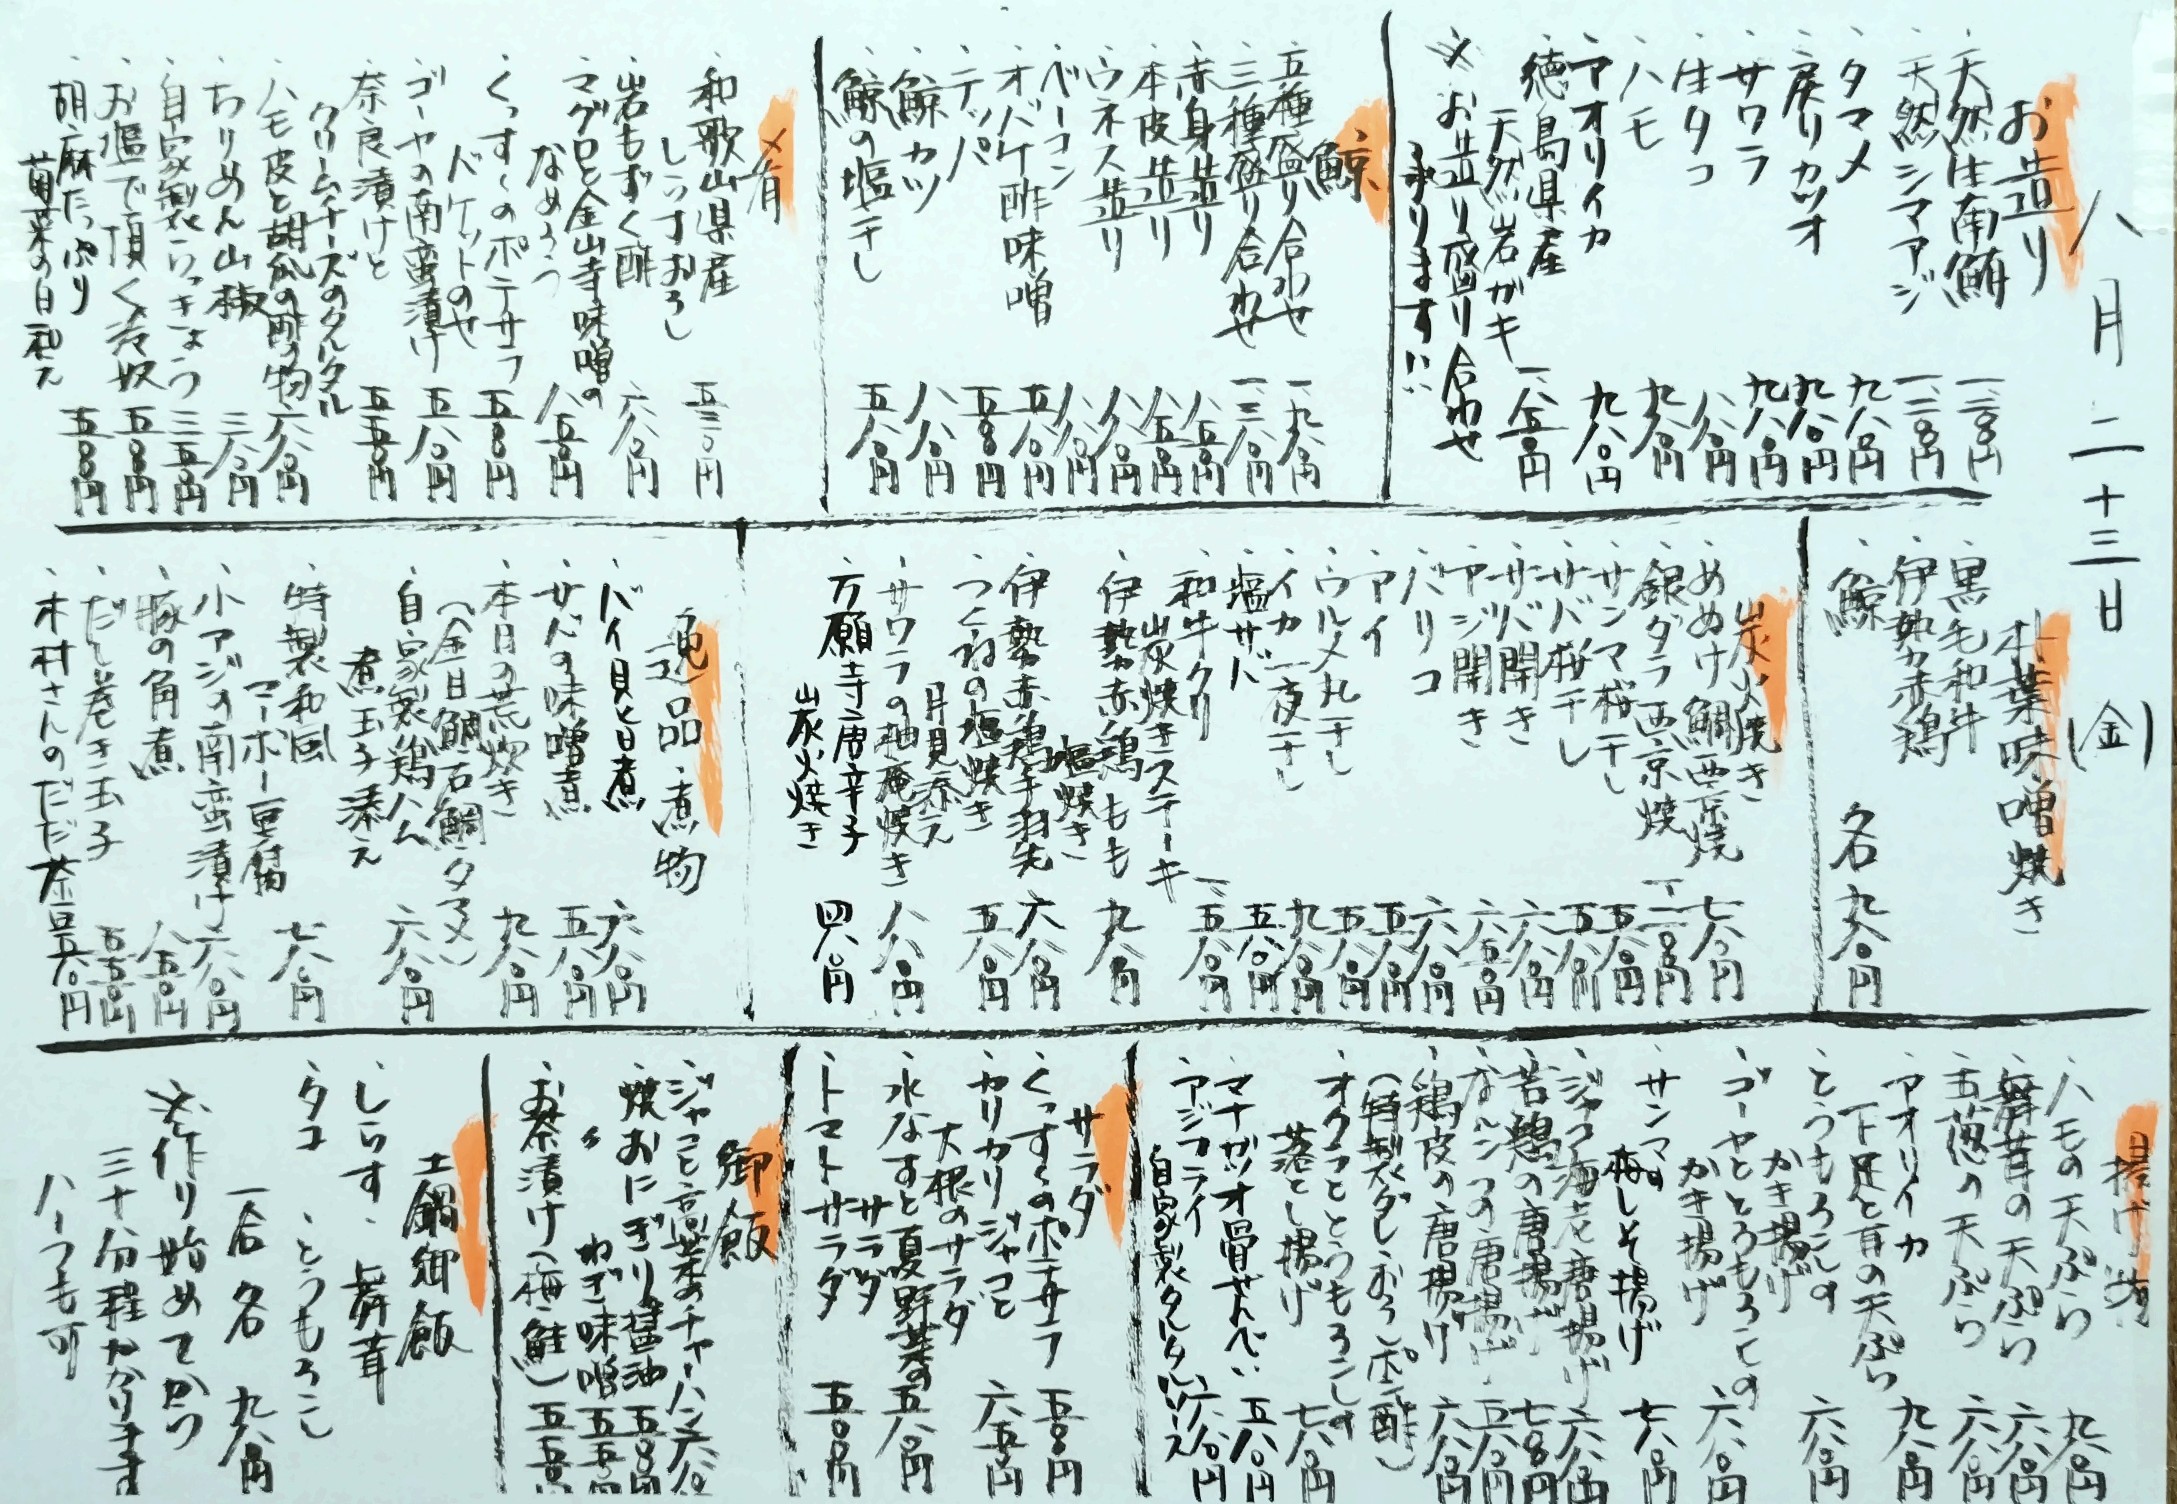 八月二十三日(金)
お造り
、天然生南鮪 一、二〇〇円
、天然シマアジ 一、二〇〇円
、タマメ 九八〇円
、戻りカツオ 九八〇円
、サワラ 九八〇円
、生タコ 八八〇円
、ハモ 九八〇円
、アオリイカ 九八〇円
、徳島県産
天然岩ガキ 一、八五〇円
※お造り盛り合わせ
承ります!!
鯨
、五種盛り合わせ 一、九八〇円
、三種盛り合わせ 一、三八〇円
、赤身造り 八五〇円
、本皮造り 八五〇円
、ウネス造り 八八〇円
、ベーコン 八八〇円
、オバケ酢味噌 五八〇円
、テッパ 五八〇円
、鯨カツ 八八〇円
、鯨の塩干し 五八〇円
肴
、和歌山県産
しらすおろし 五三〇円
、岩もずく酢 六八〇円
、マグロと金山寺味噌の
なめろう 八五〇円
、くっすんのポテサラ
バケットのせ 五八〇円
、ゴーヤの南蛮漬け 五八〇円
、奈良漬けと
クリームチーズのタルタル 五五〇円
、ハモ皮と胡瓜の酢の物 六八〇円
、ちりめん山椒 三八〇円
、自家製らっきょう 三五〇円
、お塩で頂く冷奴 五五〇円
、胡麻たっぷり
菊菜の白和え 五五〇円
朴葉味噌焼き
、黒毛和牛
、伊勢赤鶏
、鯨 各九八〇円
炭火焼き
、あめけ鯛西京焼 七八〇円
、銀ダラ西京焼 一、二〇〇円
、サンマ桜干し 五八〇円
、サバ桜干し 五八〇円
、サバ開き 六八〇円
、アジ開き 六五〇円
、バリコ 六八〇円
、アイ 五八〇円
、ウルメ丸干し 五五〇円
、イカ一夜干し 九八〇円
、塩サバ 五八〇円
、和牛クリ
炭焼きステーキ 一、五八〇円
、伊勢赤鶏もも
塩焼き 九八〇円
、伊勢赤鶏手羽先 六八〇円
、つくねの塩焼き
月見添え 五八〇円
、サワラの柚庵焼き 八八〇円
、万願寺唐辛子
炭火焼き 四八〇円
逸品・煮物
、バイ貝と日煮 六八〇円
、サバの味噌煮 五八〇円
、本日の荒炊き
(金目鯛・石鯛・タマメ) 九八〇円
、自家製鶏ハム
煮玉子添え 六八〇円
、特製和風
マーボー豆腐 七八〇円
、小アジの南蛮漬け 六八〇円
、豚の角煮 八五〇円
、だし巻き玉子 五五〇円
、木村さんのだだ茶豆 五八〇円
揚げ物
、ハモの天ぷら 九八〇円
、舞茸の天ぷら 六八〇円
、玉葱の天ぷら 六八〇円
、アオリイカ
下足と耳の天ぷら 九八〇円
、とうもろこしの
かき揚げ 六八〇円
、ゴーヤととうもろこしの
かき揚げ 六八〇円
、サンマの
梅しそ揚げ 七八〇円
、ジャコ海老唐揚げ 六八〇円
、若鶏の唐揚げ 七八〇円
、なんこつの唐揚げ 五八〇円
、鶏皮の唐揚げ 六八〇円
(特製ダレ・おろしポン酢)
、オクラととうもろこしの
落とし揚げ 七八〇円
、マナガツオ骨せんべい 五八〇円
、アジフライ
自家製タルタルソース 六八〇円
サラダ
、くっすんのポテサラ 五八〇円
、カリカリジャコと
大根のサラダ 六五〇円
、水なすと夏野菜の
サラダ 五八〇円
、トマトサラダ 五五〇円
御飯
、ジャコと高菜のチャーハン 六八〇
、焼おにぎり醤油 五五〇円
、〃 ねぎ味噌 五五〇
、お茶漬け(梅・鮭) 五五〇
土鍋御飯
しらす、舞茸
タコ、とうもろこし
一合 各 九八〇円
※作り始めてから
三十分程かかります
ハーフも可